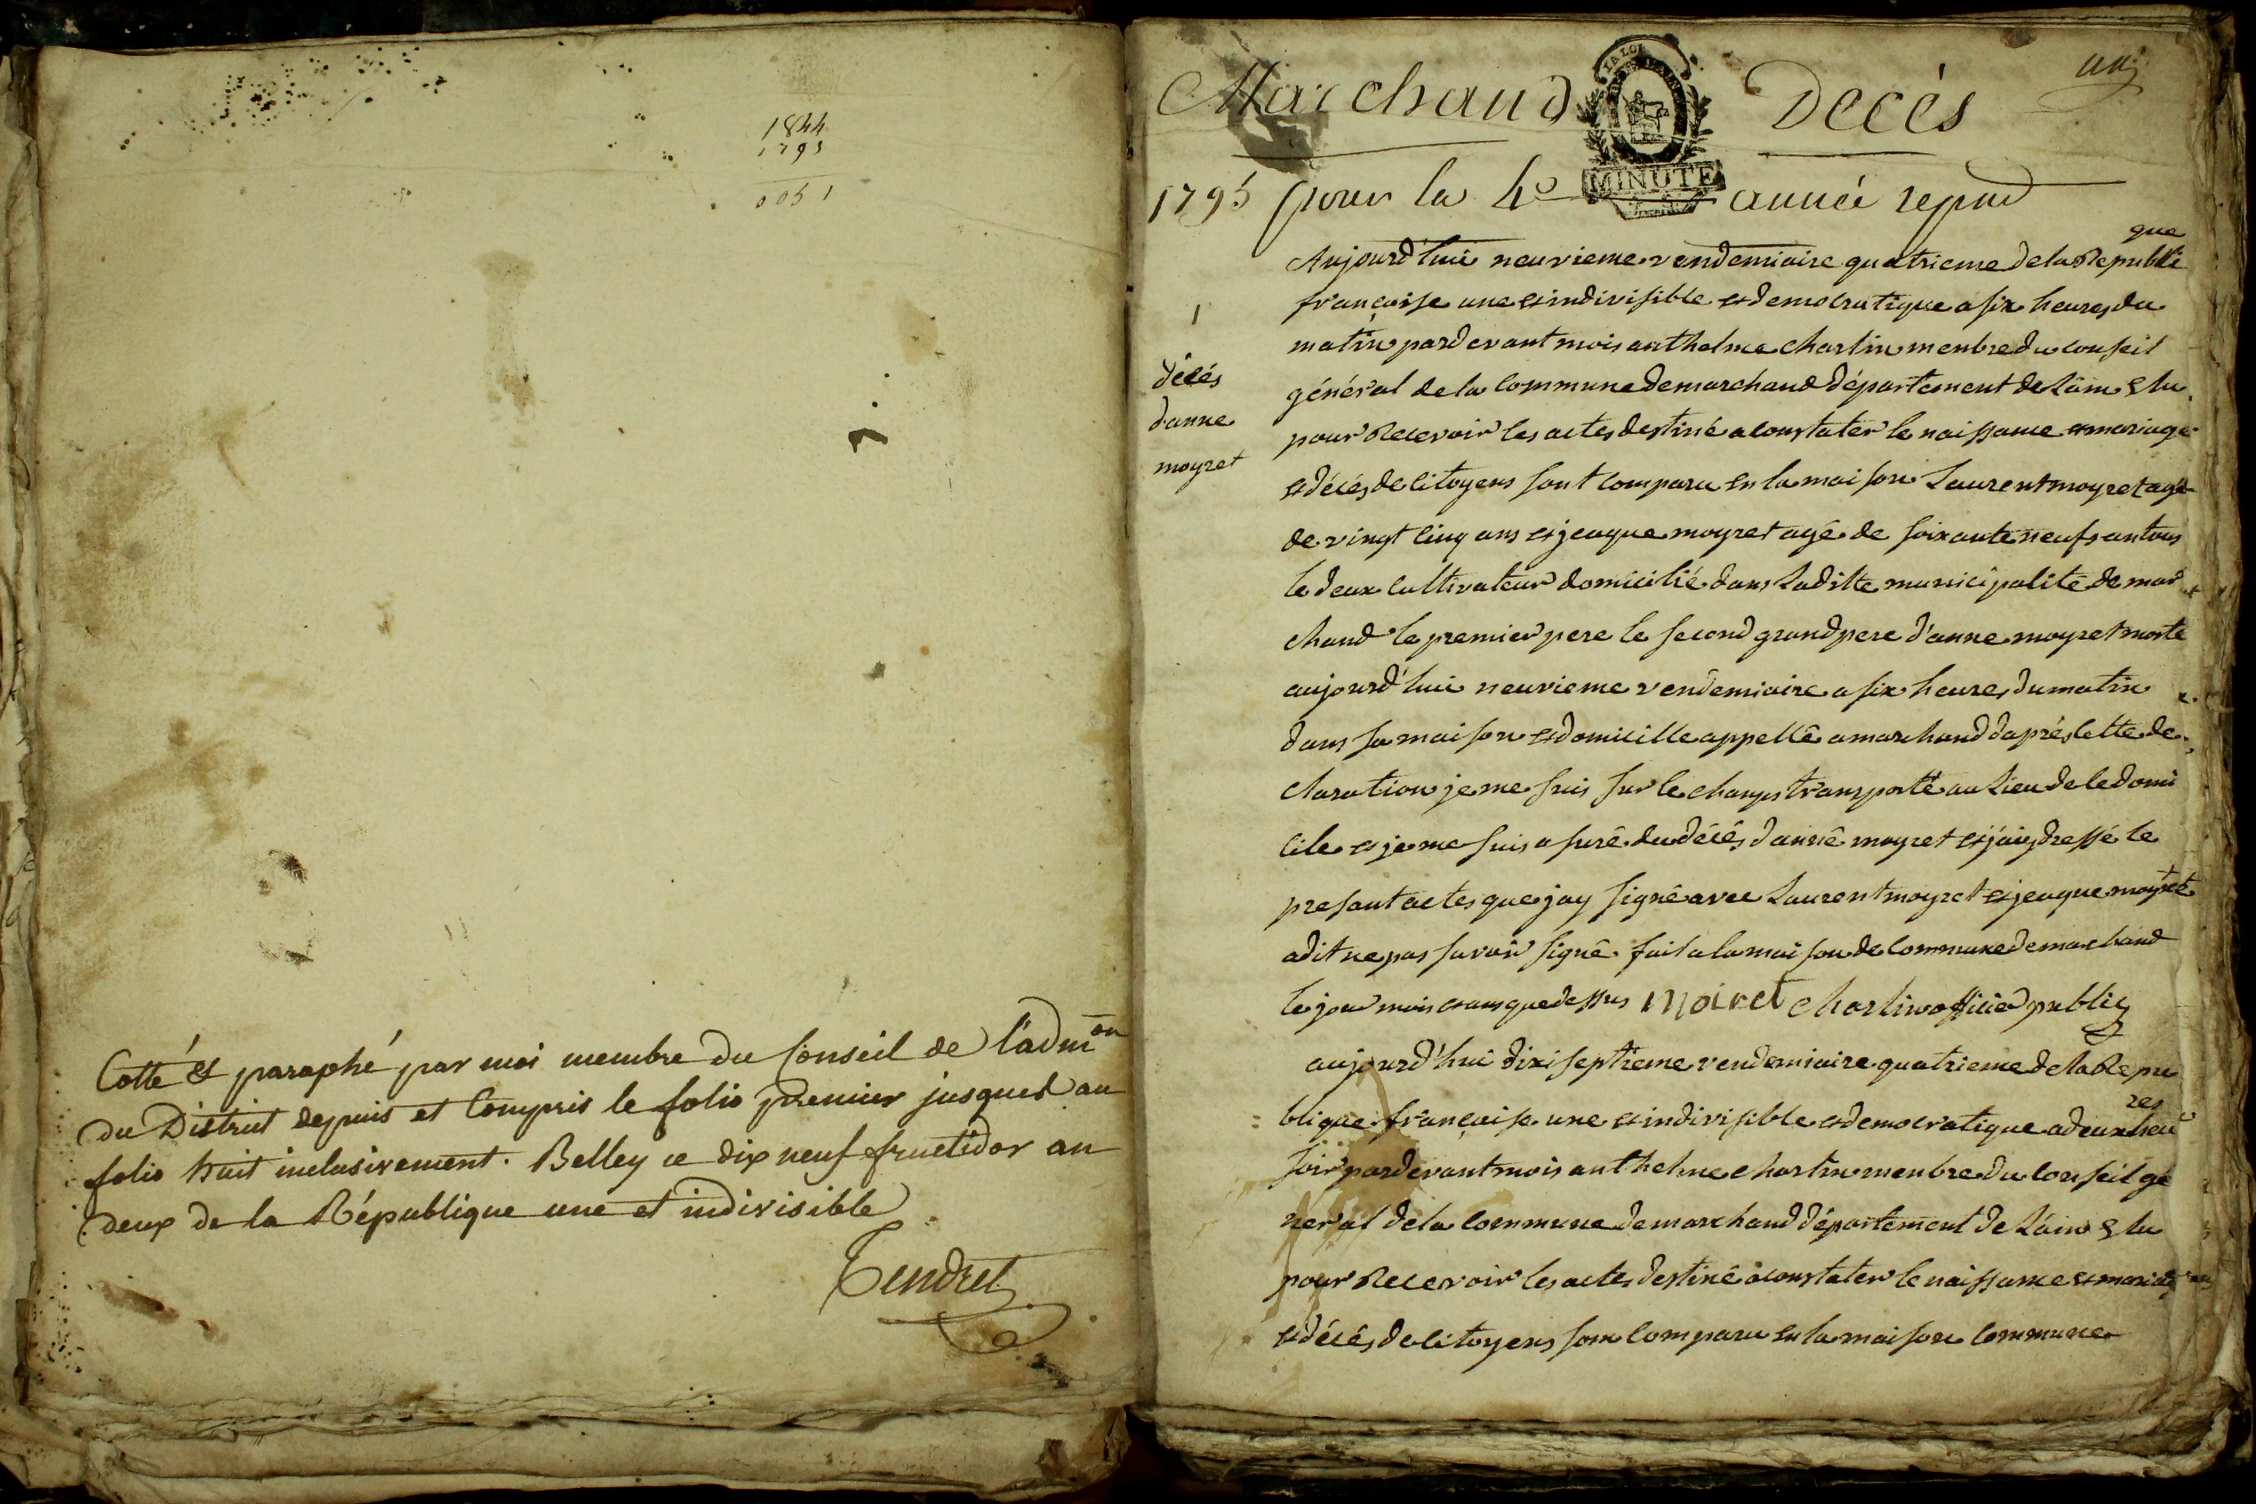 1844
1793
0051
Cotté et paraphé par moi membre du Conseil de l'adm.on
du District depuis et Compris le folio premier jusques au
folio huit inclusivement. Belley ce dix neuf fructidor an
deux de la République une et indivisible
Tendret
Marchand Decés
LA LOI
MINUTE
1795 pour la 4e année repud
Aujourd'hui neuvieme vendemiaire quatrieme de la Republi que
francaisse une et indivisible et democratique a six heures du
matin pardevant mois anthelme charlin menbre du conseil
général de la Commune de marchand département de Lain Elu
pour Recevoir les actes destiné a constater le naissance et mariage
et décés de Citoyens sont Comparu en la maison Laurent moyret agé
de vingt cinq ans et jeaque moyret agé de soixante neuf ans tous
le deux Cultivateur domicilié dans Laditte municipalité de mar
chand le premier pere le second grand pere d'anne moyret morte
aujourd'hui neuvieme vendemiaire a six heures du matin
dans sa maison et domicille appellé a marchand daprés cette de
claration je me suis sur le champs transporté au Lieu de le domi
cile et je me suis asuré du décés d'anne moyret et jais dressé le
presant actes que jay signé avec Laurent moyret et jeaque moyret
a dit ne pas savoir signé fait a la maison de Commune de marchand
le jour mois et ans que dessus Moiret Charlin officier public
1
décés
danne
moyret
aujourd'hui dixiseptieme vendemiaire quatrieme de la Repu
blique françaisse une et indivisible et democratique a deux heu res
soir pardevant mois anthelme charlin menbre du conseil gé
neral de la Commune de marchand département de Lain Elu
pour Recevoir les actes destiné a constater le naissance et mariage
et décés de Citoyens sont Comparu en la maison Commune